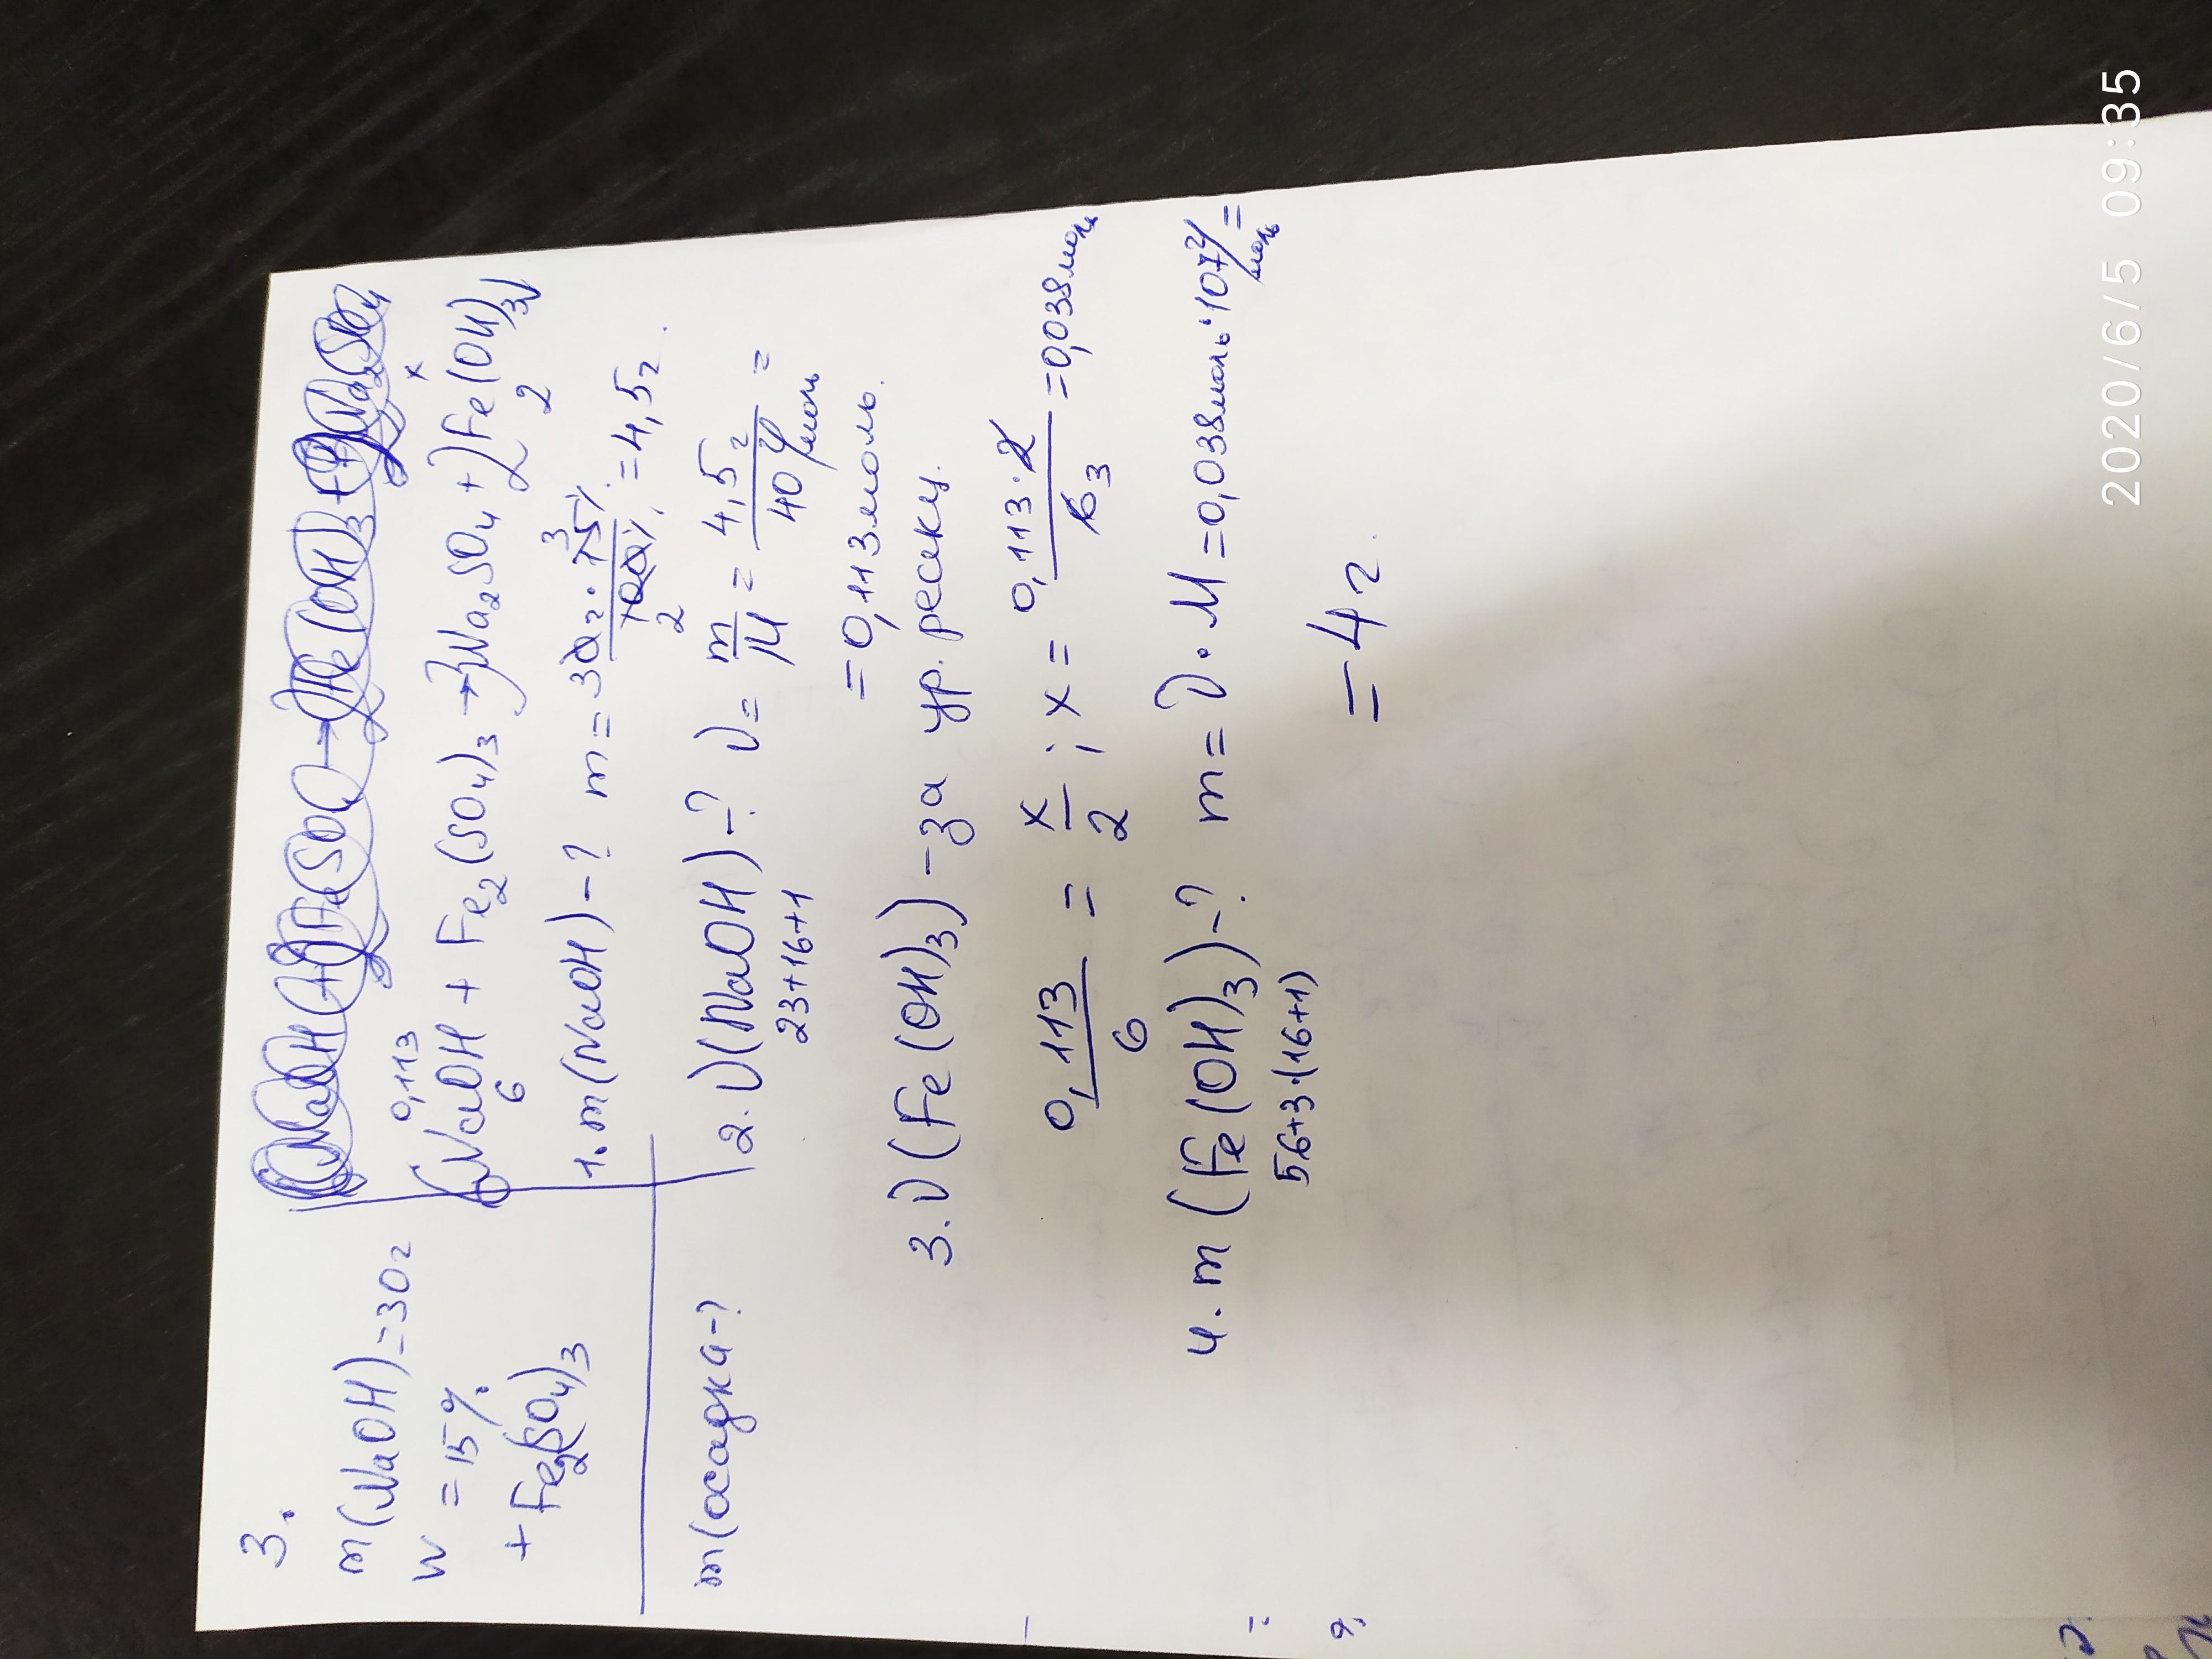 3.
m(NaOH)=30г
W=15%
+ Fe2(SO4)3
m(осадка-?
0,113 x
6NaOH + Fe2(SO4)3 → 3Na2SO4 + 2Fe(OH)3↓
6 2
1. m(NaOH)-? m = 30г · 15% 3 / 100% 2 = 4,5г.
2. ν(NaOH)-? ν = m/M = 4,5г / 40 г/моль =
23+16+1
= 0,113моль.
3. ν(Fe(OH)3) - за ур. реакц.
0,113/6 = x/2 ; x = 0,113·2 / 6 3 = 0,038моль
4. m(Fe(OH)3)-? m = ν·M = 0,038моль·107г/моль =
56+3·(16+1)
= 4г.
2020/6/5 09:35